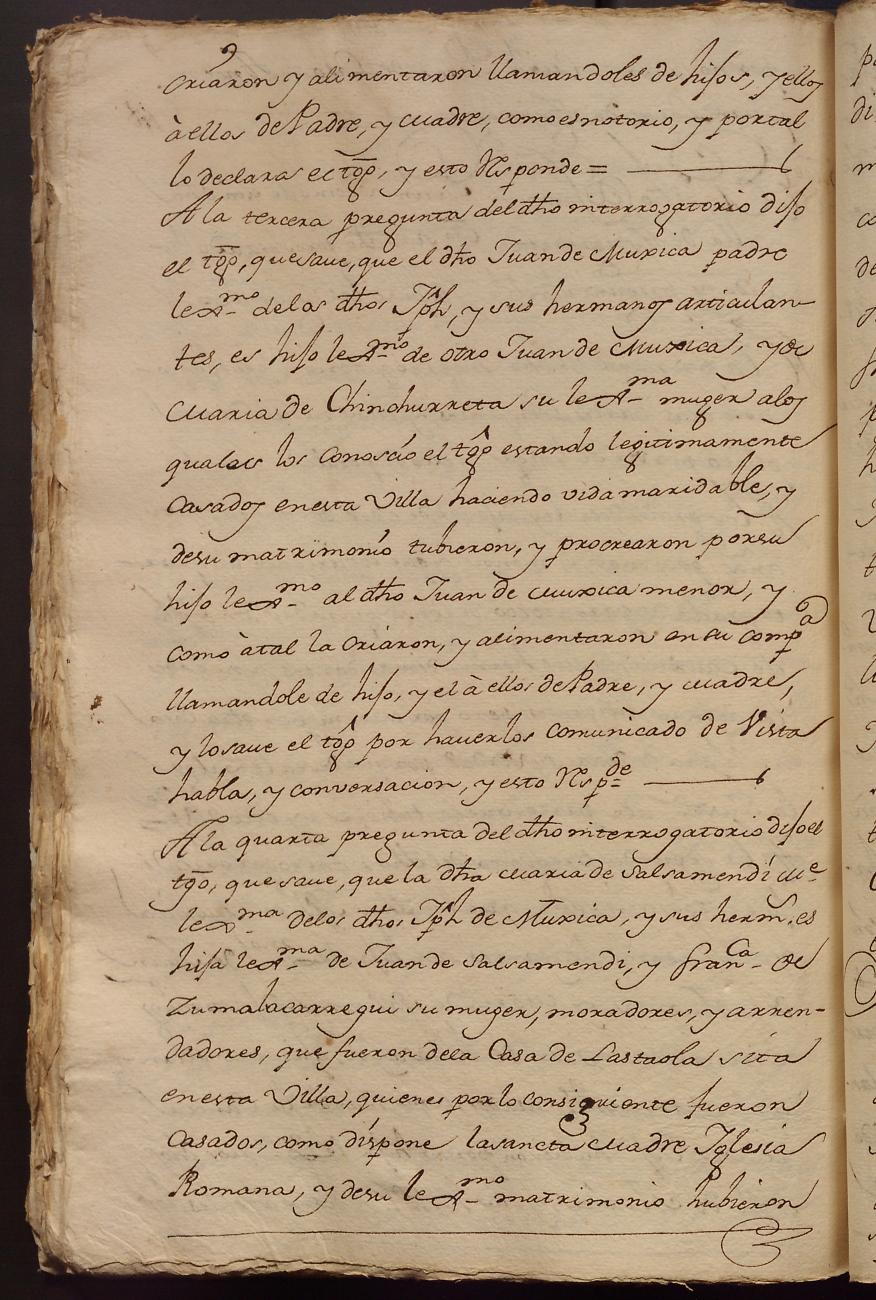 Criaron y alimentaron llamandoles de hijos, y ellos
à ellos de Padre, y Madre, como es notorio, y por tal
lo declara el tgō, y esto Responde =
A la tercera pregunta del dho interrogatorio dijo
el tgō, que save, que el dho Juan de Muxica padre
lexmo de los dhos Jph, y sus hermanos articulan-
tes, es hijo lexmo de otro Juan de Muxica, y de
Maria de Chinchurreta su lexma muger a los
quales los conoscio el tgō estando legitimamente
Casados en esta Villa haciendo vida maridable, y
de su matrimonio tubieron, y procrearon por su
hijo lexmo al dho Juan de Muxica menor, y
como à tal la Criaron, y alimentaron en su compa
llamandole de hijo, y el à ellos de Padre, y Madre,
y lo save el tgō por haverlos comunicado de Vista
habla, y conversacion, y esto Respde
A la quarta pregunta del dho interrogatorio dijo el
tgō, que save, que la dha Maria de Salsamendi Me
lexma de los dhos Jph de Muxica, y sus herms. es
hija lexma de Juan de Salsamendi, y Franca de
Zumalacarregui su muger, moradores, y arren-
dadores, que fueron de la Casa de Lastaola sita
en esta Villa, quienes por lo consiguiente fueron
Casados, como dispone la sancta Madre Iglesia
Romana, y de su lexmo matrimonio hubieron